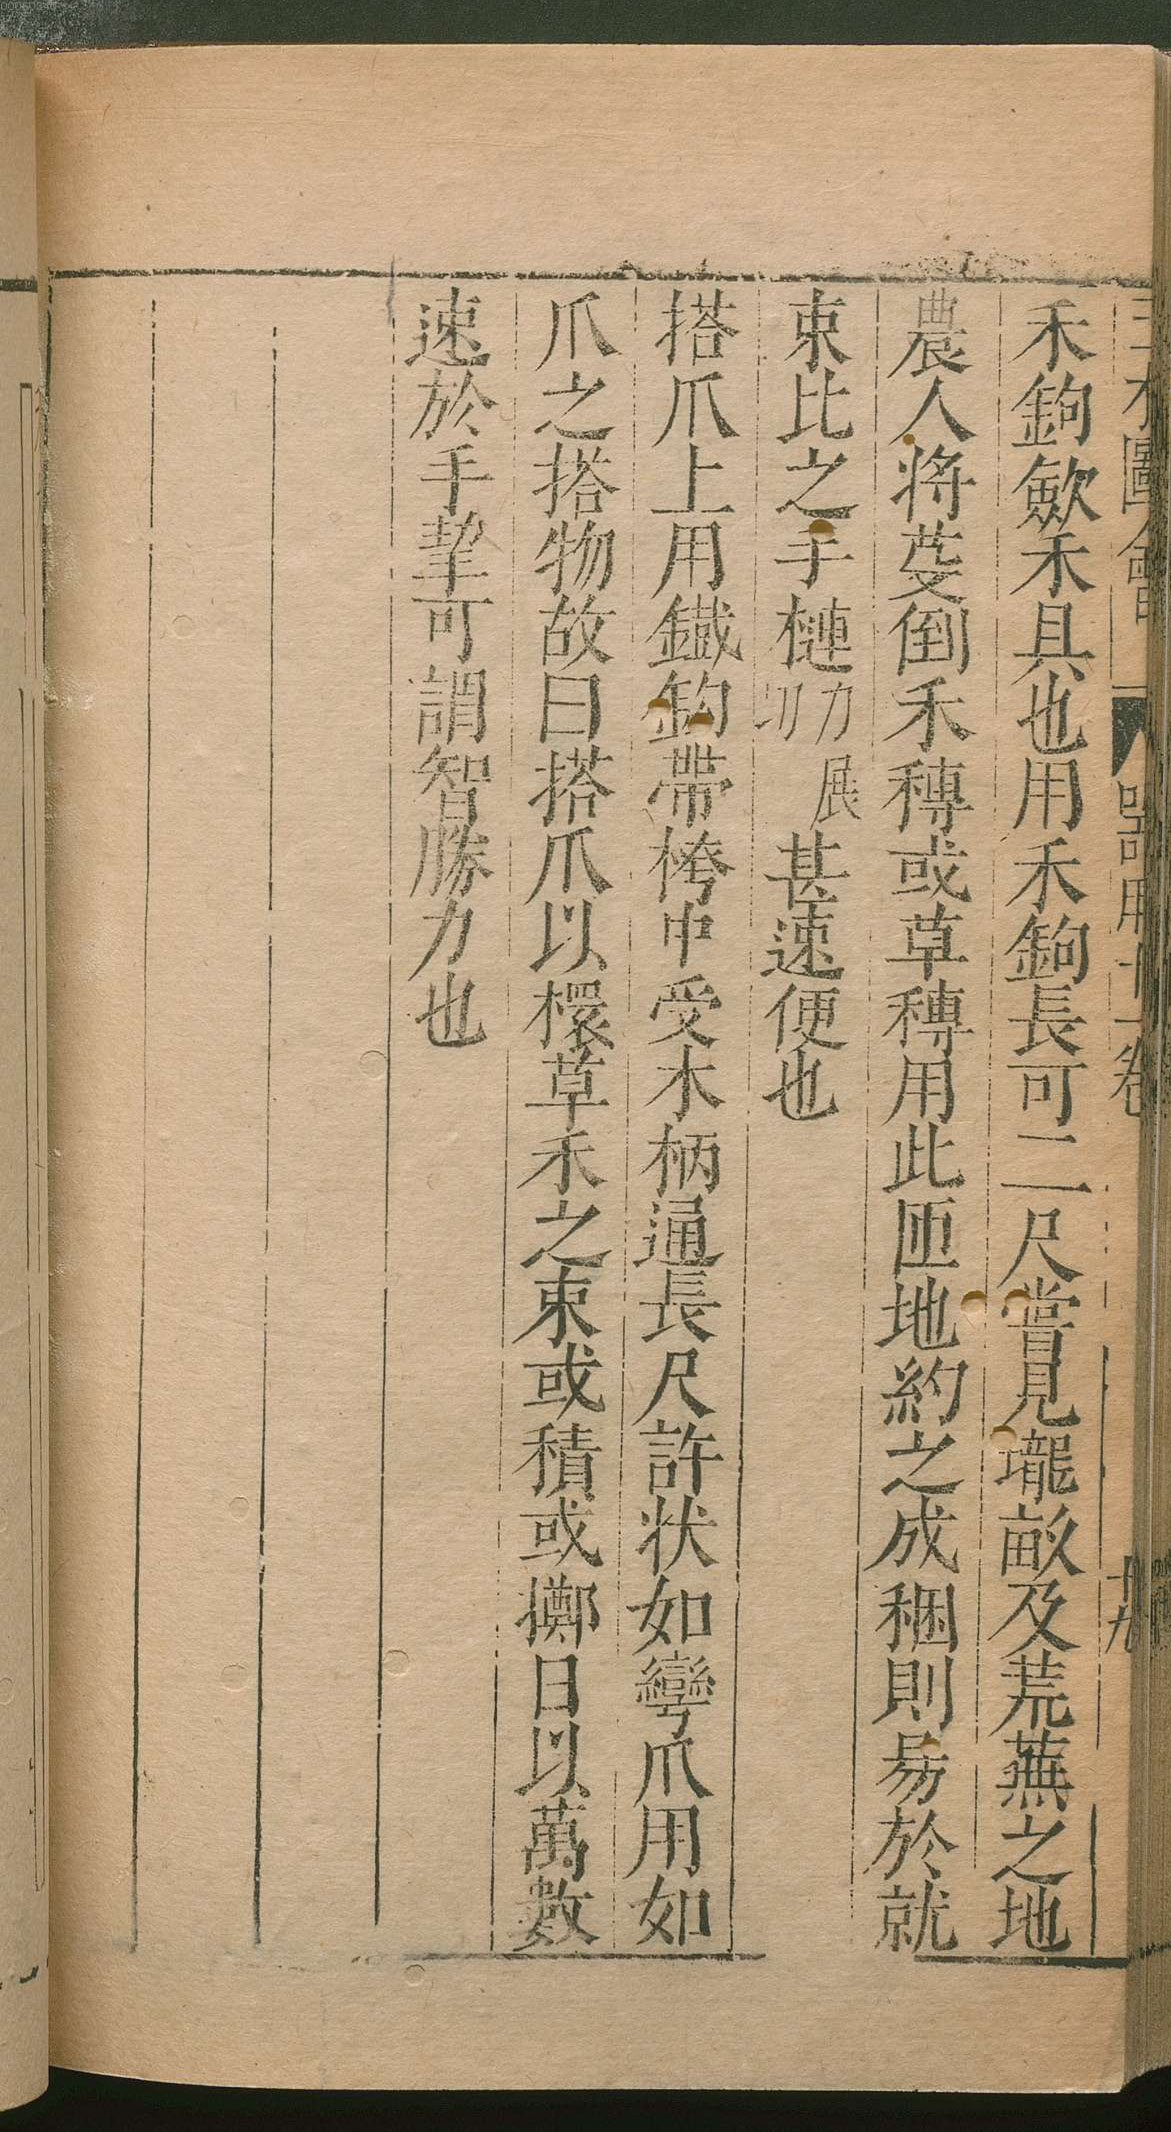 三才圖會
器用十一卷
十九
禾鉤歛禾具也用禾鉤長可二尺嘗見壠畝及荒蕪之地
農人将芟倒禾穂或草穂用此匝地約之成稇則易於就
束比之手槤力展切甚速便也
搭爪上用鐵鈎帶桍中受木柄通長尺許状如彎爪用如
爪之搭物故曰搭爪以擐草禾之束或積或擲日以萬數
速於手挈可謂智勝力也